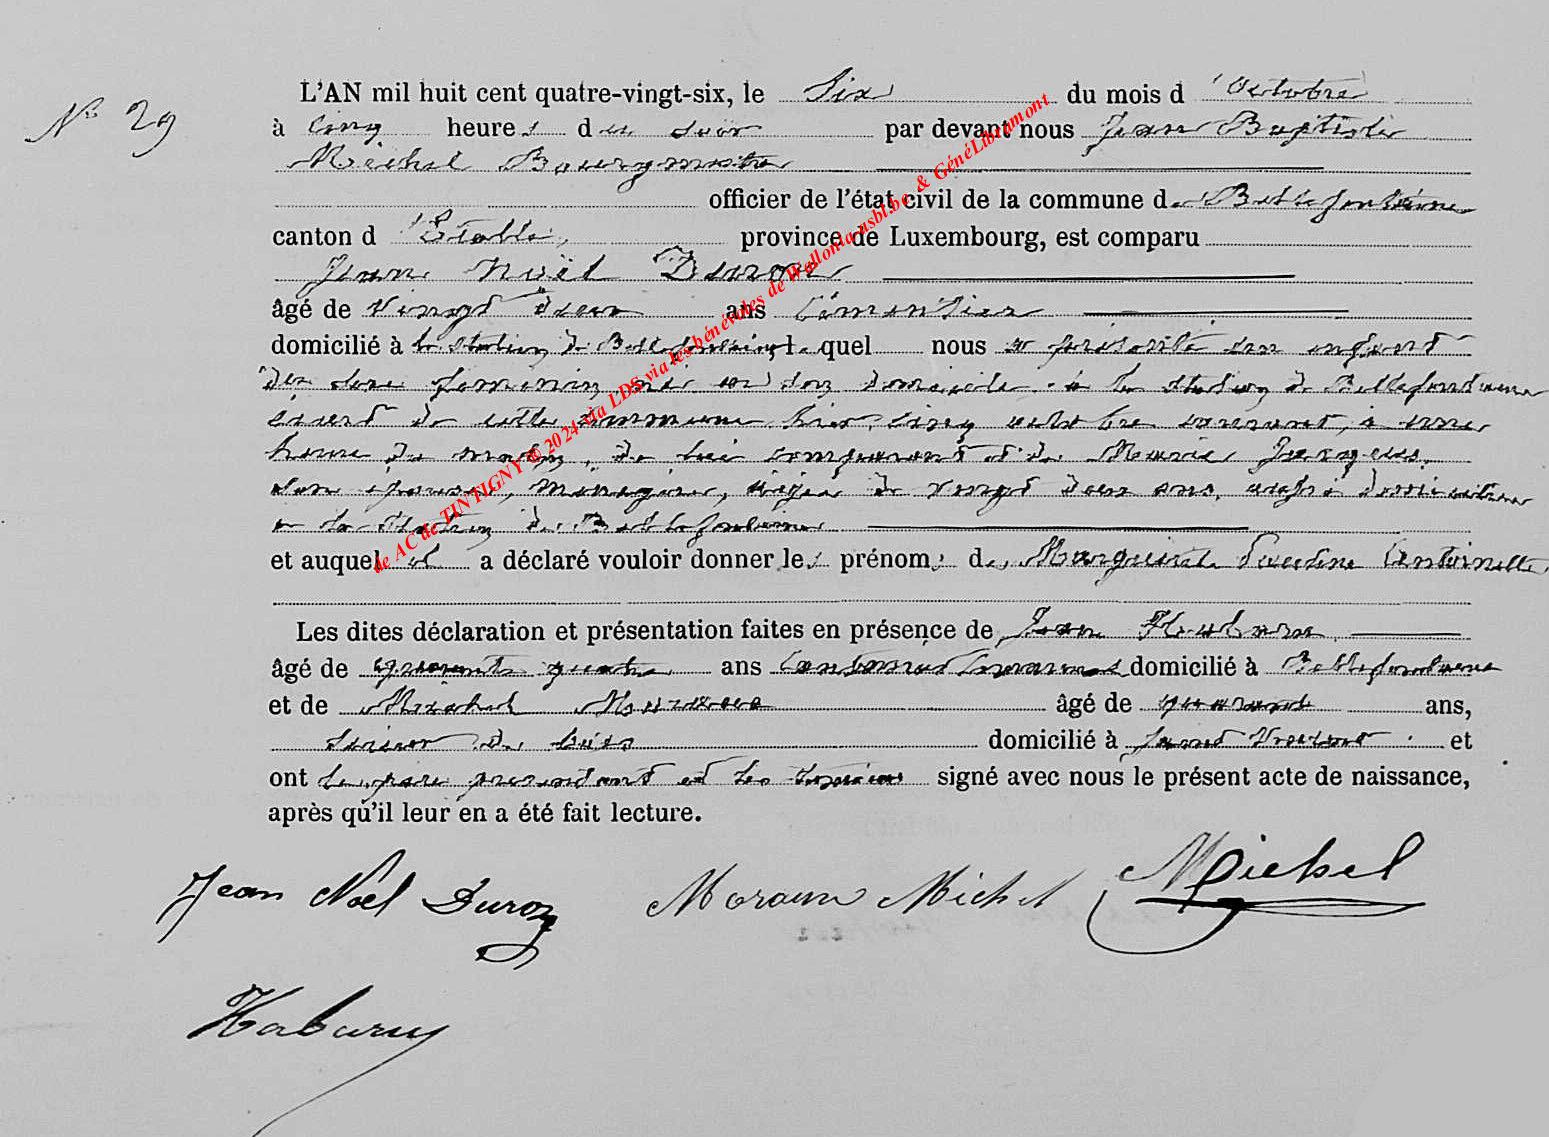 N° 29
L'AN mil huit cent quatre-vingt-six, le Six du mois d'Octobre
à cinq heures du soir par devant nous Jean Baptiste
Michel Bourgmestre
officier de l'état civil de la commune de Bellefontaine
canton d'Etalle, province de Luxembourg, est comparu
Jean Noël Duroy
âgé de vingt deux ans Cémentier
domicilié à la station de Bellefontaine, lequel nous a présenté un enfant
du sexe féminin, né en son domicile à la station de Bellefontaine
de cette commune hier, cinq octobre courant, à une
heure du matin, de lui comparant et de Marie Jacques,
son épouse, ménagère, âgée de vingt deux ans, aussi domiciliée
à la station de Bellefontaine
et auquel il a déclaré vouloir donner les prénoms de Marguerite Antoinette
Les dites déclaration et présentation faites en présence de Jean Habaru
âgé de quarante quatre ans domicilié à Bellefontaine
et de Michel âgé de quarante ans,
Scieur de bois domicilié à Saint Vincent et
ont le père présentant et les témoins signé avec nous le présent acte de naissance,
après qu'il leur en a été fait lecture.
Jean Noël Duroy Michel Michel
Habaru
de AC de TINTIGNY © 2024 via LDS via les bénévoles de Wallonia-asbl.be & GénéLibramont